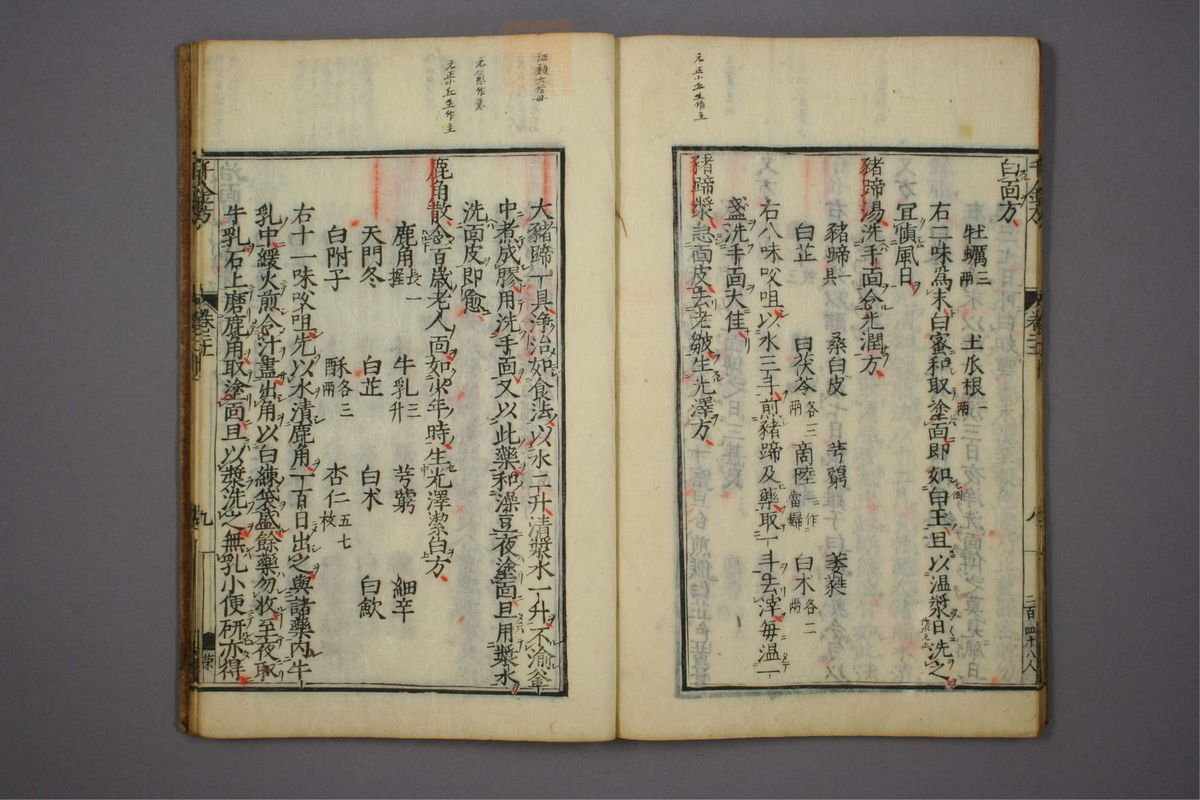 白面方
牡蠣三兩 土瓜根一兩
右二味為末白蜜和取塗面即如白玉旦以温漿日洗之
冝慎風日
豬蹄湯洗手面令光潤方
豬蹄一具 桑白皮 芎藭 萎蕤
白芷 白茯苓各三兩 商陸一作當歸 白木各二兩
右八味㕮咀以水三斗煎豬蹄及藥取一斗去滓每温一
盞洗手面大佳
豬蹄漿急面皮去老皺生光澤方
元正小丘生作主
大豬蹄一具淨治如食法以水二升清漿水一升不渝釜
中煮成膠用洗手面又以此藥和澡豆夜塗面旦用漿水
洗面皮即愈
鹿角散令百歲老人面如少年時生光澤潔白方
鹿角長一握 牛乳三升 芎藭 細辛
天門冬 白芷 白术 白歛
白附子 酥各三兩 杏仁五七枚
右十一味㕮咀先以水漬鹿角一百日出之與諸藥內牛
乳中緩火煎令汁盡出角以白練袋盛餘藥勿收至夜取
牛乳石上磨鹿角取塗面且以漿洗之無乳小便研亦得
千金方
卷
九
元正小丘生作主